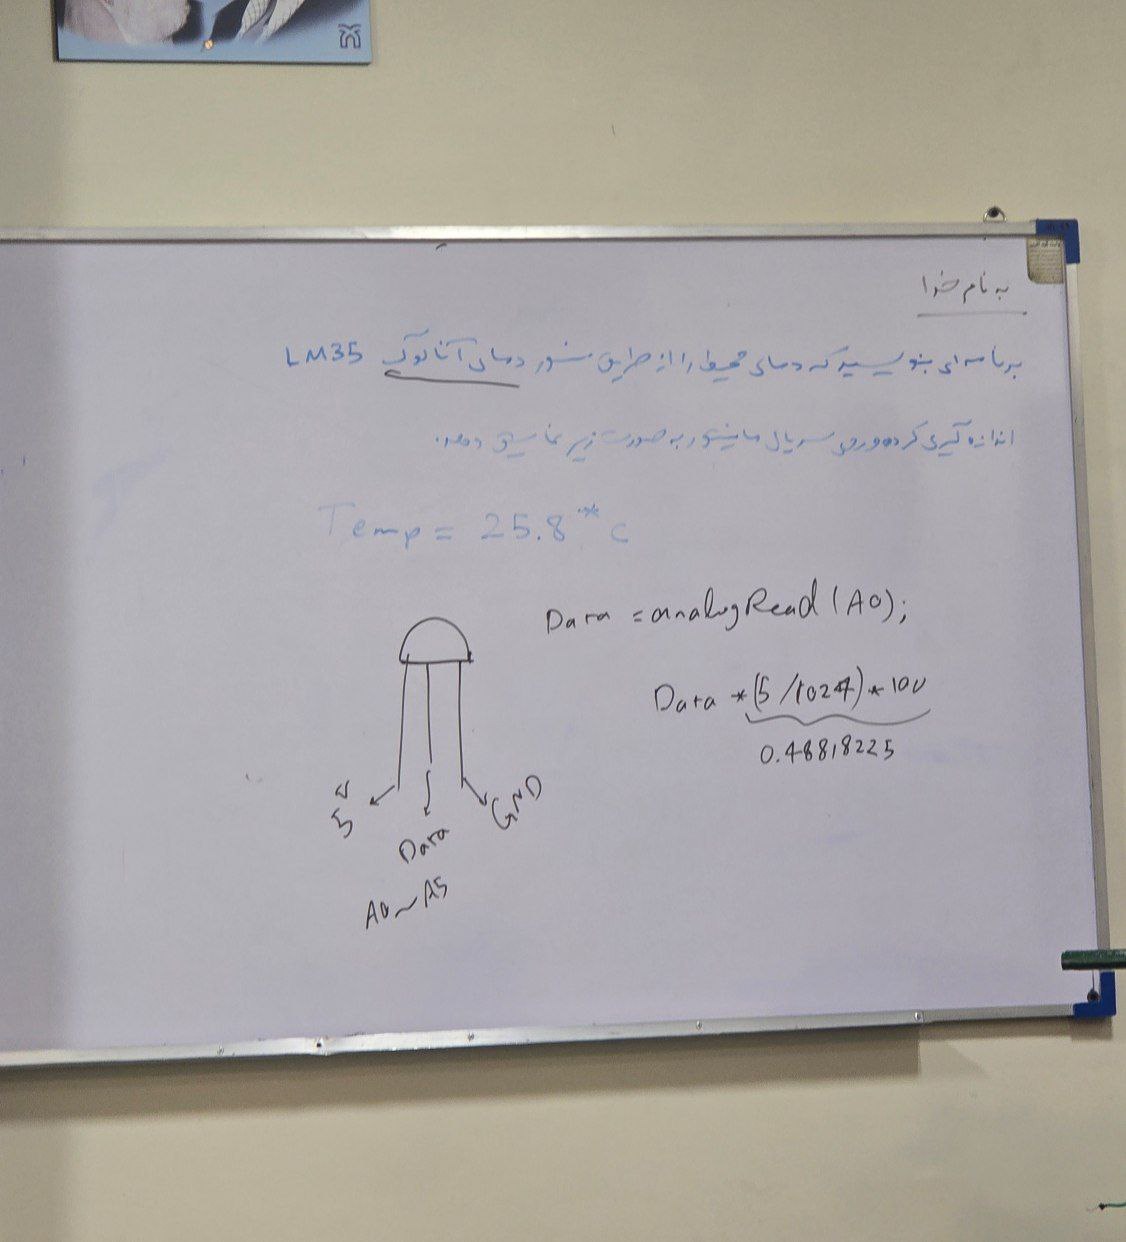 به نام خدا
برنامه ای بنویسید که دمای محیط را از طریق سنسور دمای آنالوگ LM35
اندازه گیری کرده و روی سریال مانیتور به صورت زیر نمایش دهد.
Temp = 25.8°* C
Data = analogRead (A0);
Data * (5/1024) * 100
0.48818225
5V
Data
GND
A0~A5